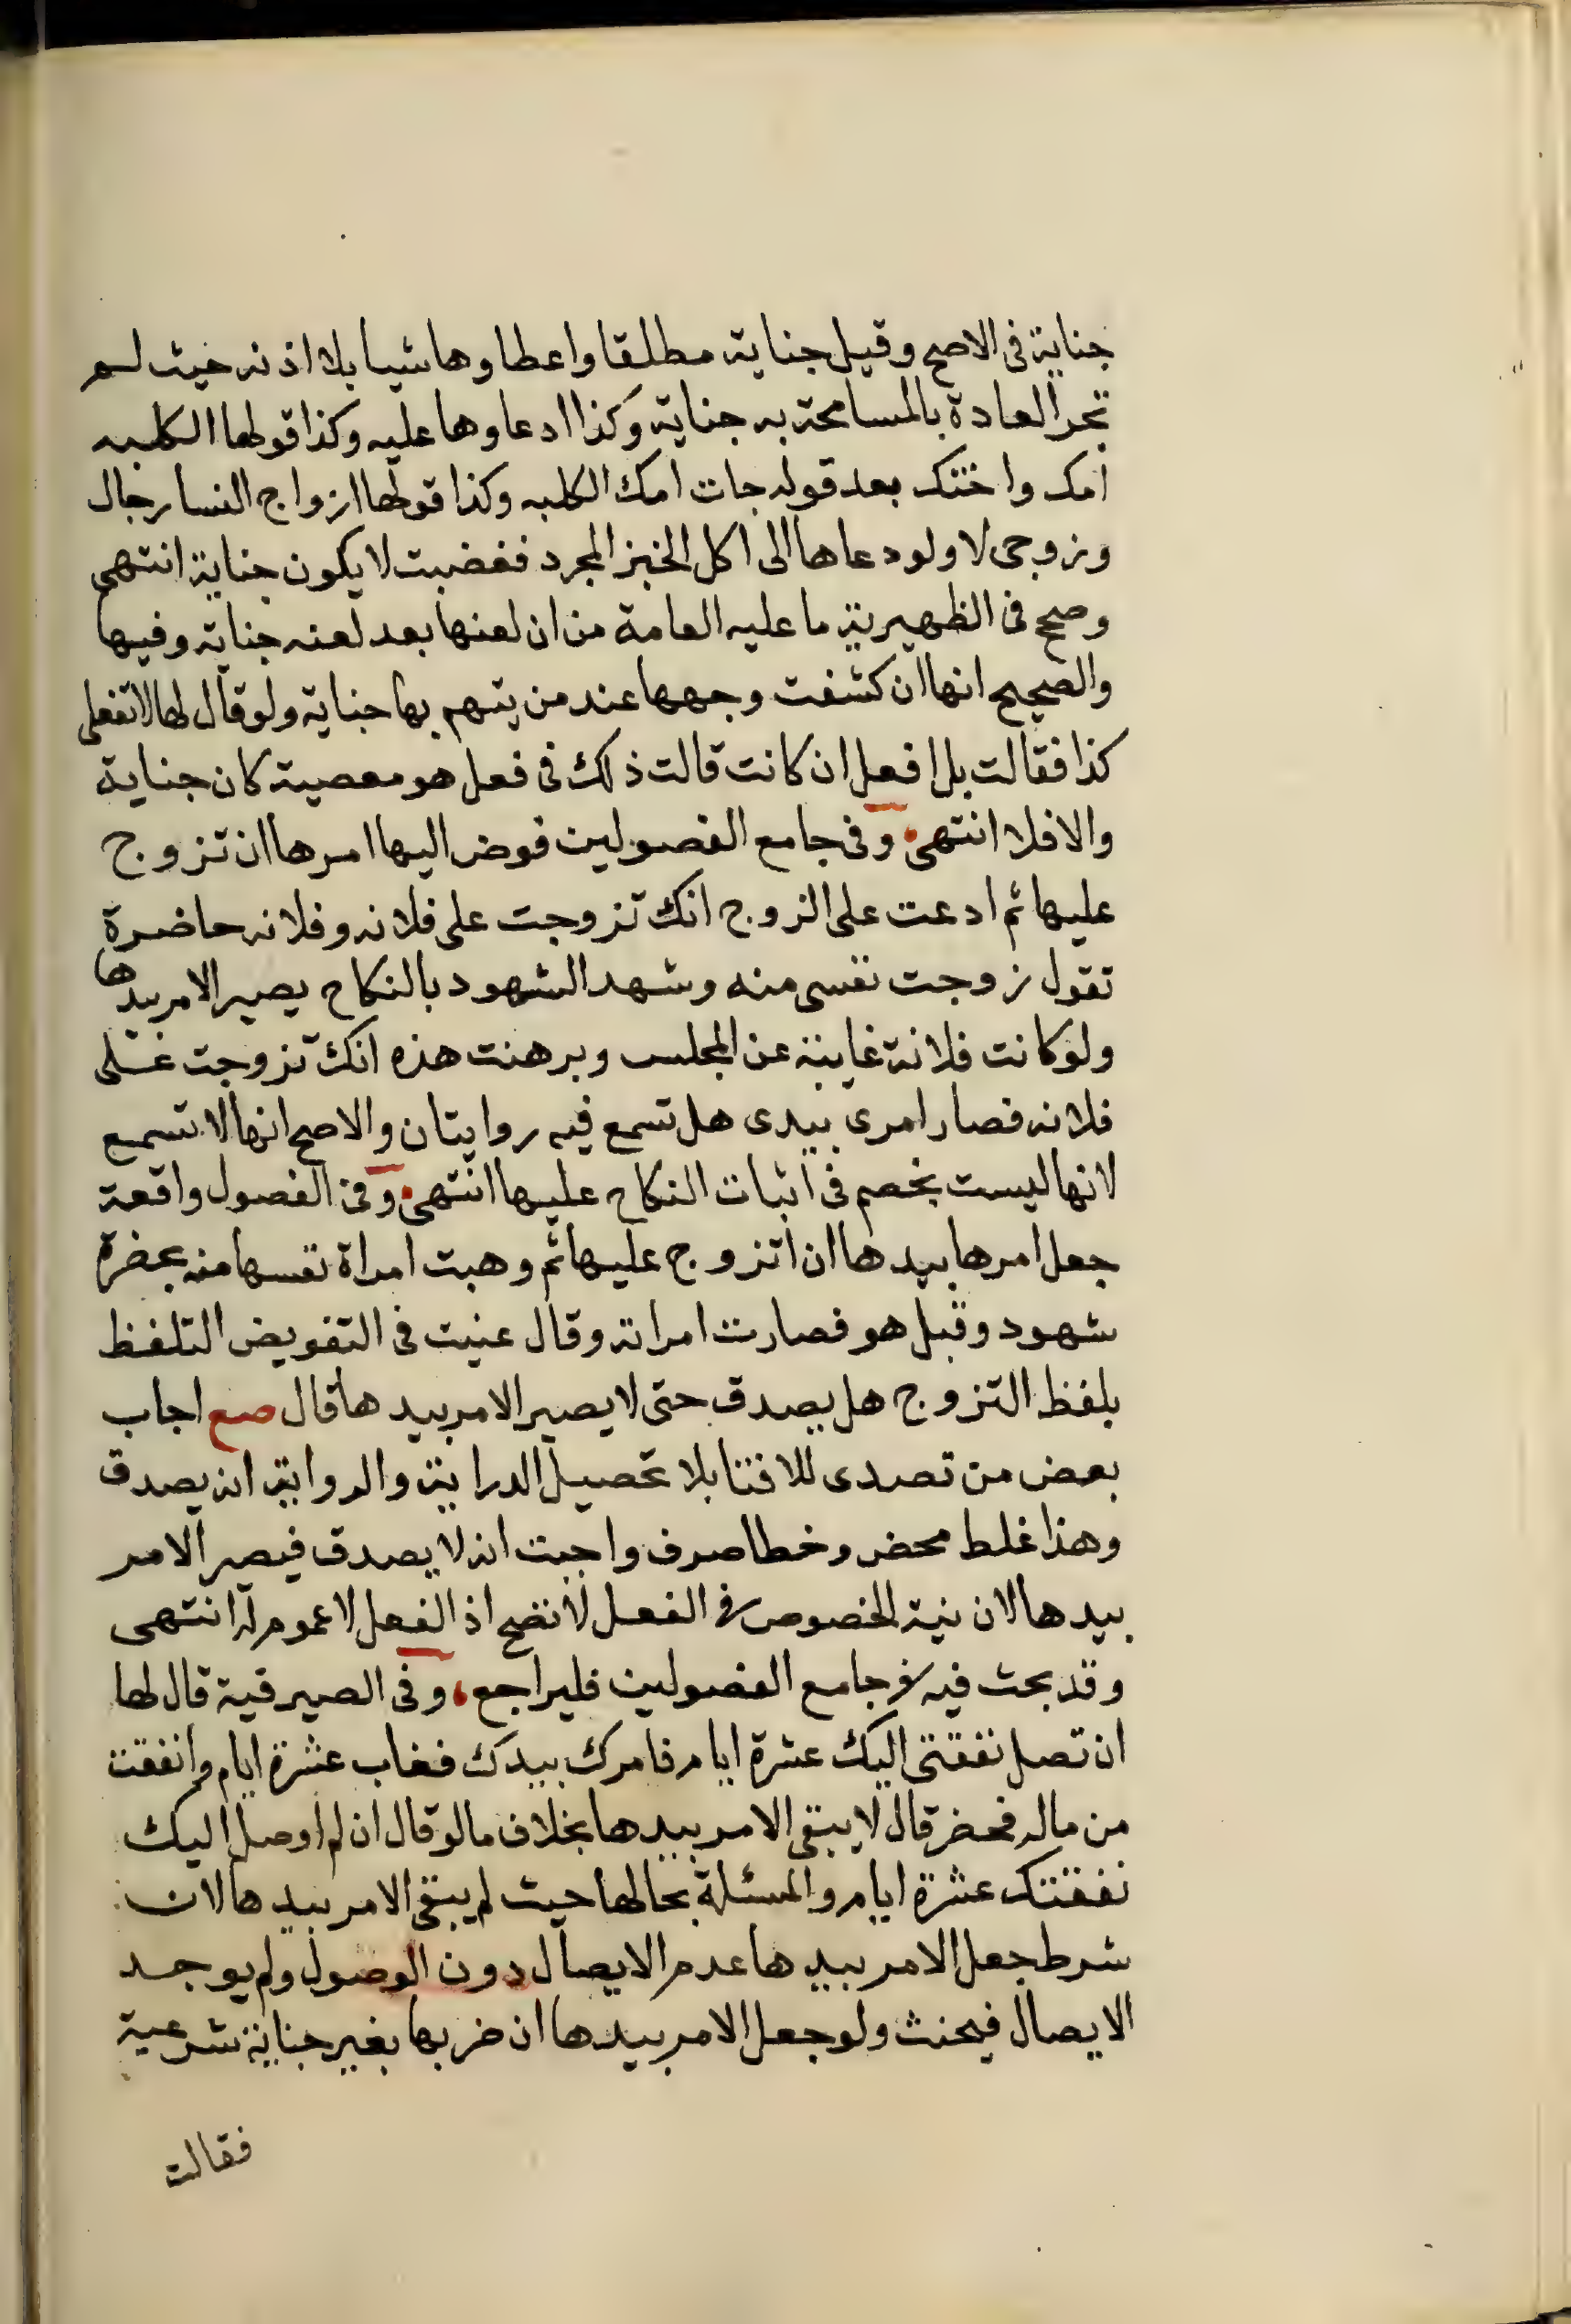 جناية فى الاصح وقيل جناية مطلقا واعطاوها شيا بلا اذنه حيث لم
تجر العادة بالمسامحة به جناية وكذا ادعاوها عليه وكذا قولها الكلبه
امك واختك بعد قوله جات امك الكلبه وكذا قولها ازواج النسا رجال
وزوجى لا ولو دعاها الى اكل الخبز المجرد فغضبت لا يكون جناية انتهى
وصحح فى الظهيرية ما عليه العامة من ان لعنها بعد لعنه جناية وفيها
والصحيح انها ان كشفت وجهها عند من يتهم بها جناية ولو قال لها لا تفعلى
كذا فقالت بل افعل ان كانت قالت ذلك فى فعل هو معصية كان جناية
والا فلا انتهى وفى جامع الفصولين فوض اليها امرها ان تزوج
عليها ثم ادعت على الزوج انك تزوجت على فلانه وفلانه حاضرة
تقول زوجت نفسى منه وشهد الشهود بالنكاح يصير الامر بيدها
ولو كانت فلانة غايبة عن المجلس وبرهنت هذه انك تزوجت على
فلانه فصار امرى بيدى هل تسمع فيه روايتان والاصح انها لا تسمع
لانها ليست بخصم فى اثبات النكاح عليها انتهى وفى الفصول واقعة
جعل امرها بيدها ان اتزوج عليها ثم وهبت امراة نفسها منه بحضرة
شهود وقبل هو فصارت امراته وقال عنيت فى التفويض التلفظ
بلفظ التزوج هل يصدق حتى لا يصير الامر بيدها قال صع اجاب
بعض من تصدى للافتا بلا تحصيل الدراية والرواية انه يصدق
وهذا غلط محض وخطا صرف واجبت انه لا يصدق فيصر الامر
بيدها لان نية الخصوص فى الفعل لا تضح اذ الفعل لا عموم له انتهى
وقد بحث فيه فى جامع الفصولين فليراجع وفى الصيرفية قال لها
ان تصل نفقتى اليك عشرة ايام فامرك بيدك فغاب عشرة ايام وانفقت
من ماله فحضر قال لا يبقى الامر بيدها بخلاف ما لو قال ان لم اوصل اليك
نفقتك عشرة ايام والمسئلة بحالها حيث لم يبقى الامر بيدها لان
شرط جعل الامر بيدها عدم الايصال دون الوصول ولم يوجد
الايصال فيحنث ولو جعل الامر بيدها ان ضربها بغير جناية شرعية
فقالت